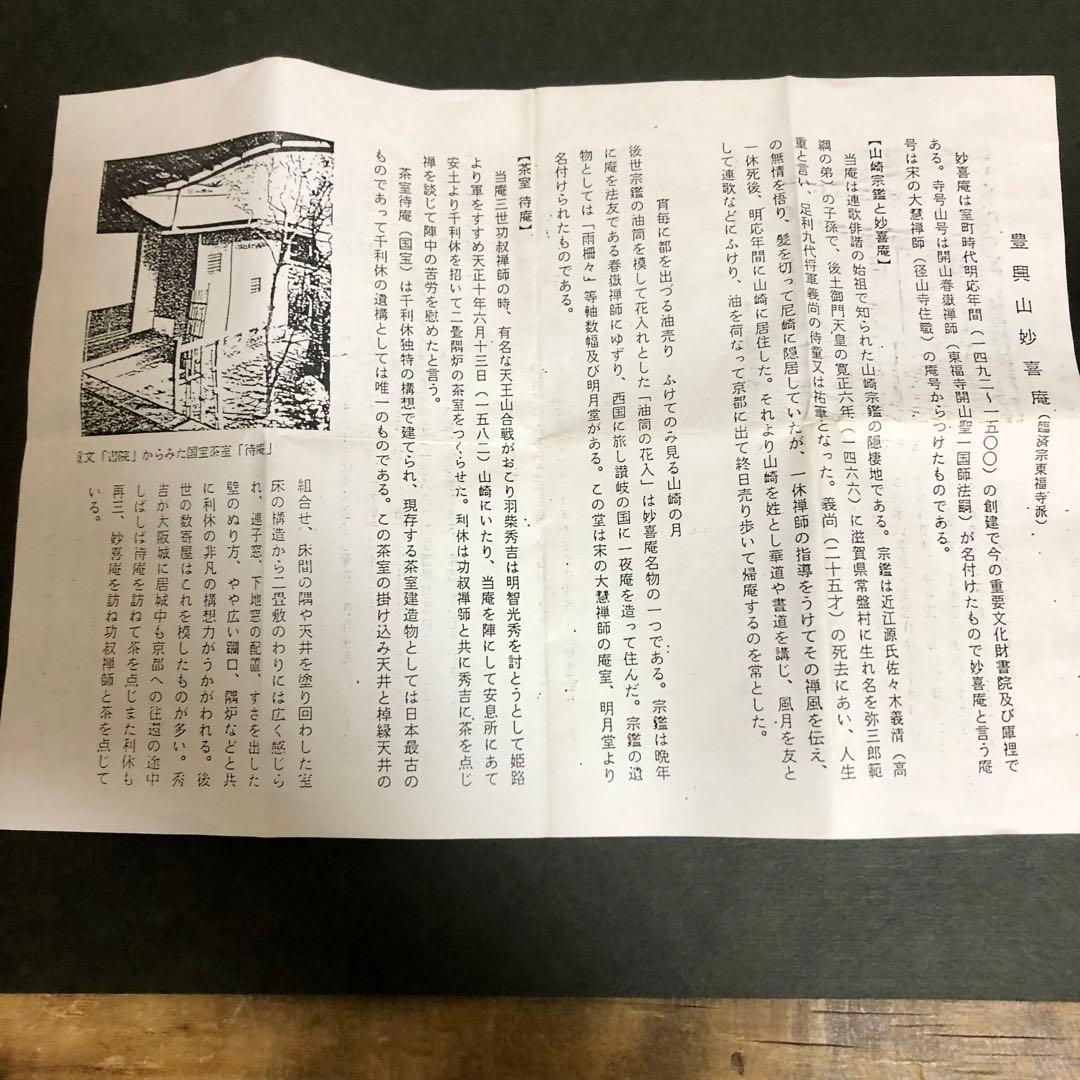 豊興山妙喜庵（臨済宗東福寺派）
妙喜庵は室町時代明応年間（一四九二〜一五〇〇）の創建で今の重要文化財書院及び庫裡で
ある。寺号山号は開山春嶽禅師（東福寺開山聖一国師法嗣）が名付けたもので妙喜庵と言う庵
号は宋の大慧禅師（径山寺住職）の庵号からつけたものである。
【山崎宗鑑と妙喜庵】
当庵は連歌俳諧の始祖で知られた山崎宗鑑の隠棲地である。宗鑑は近江源氏佐々木義清（高
綱の弟）の子孫で、後土御門天皇の寛正六年（一四六六）に滋賀県常盤村に生れ名を弥三郎範
重と言い、足利九代将軍義尚の侍童又は祐筆となった。義尚（二十五才）の死去にあい、人生
の無情を悟り、髪を切って尼崎に隠居していたが、一休禅師の指導をうけてその禅風を伝え、
一休死後、明応年間に山崎に居住した。それより山崎を姓とし華道や書道を講じ、風月を友と
して連歌などにふけり、油を荷なって京都に出て終日売り歩いて帰庵するのを常とした。
宵毎に都を出づる油売り　ふけてのみ見る山崎の月
後世宗鑑の油筒を模して花入れとした「油筒の花入」は妙喜庵名物の一つである。宗鑑は晩年
に庵を法友である春嶽禅師にゆずり、西国に旅し讃岐の国に一夜庵を造って住んだ。宗鑑の遺
物としては「雨柵々」等軸数幅及び明月堂がある。この堂は宋の大慧禅師の庵室、明月堂より
名付けられたものである。
【茶室　待庵】
当庵三世功叔禅師の時、有名な天王山合戦がおこり羽柴秀吉は明智光秀を討とうとして姫路
より軍をすすめ天正十年六月十三日（一五八二）山崎にいたり、当庵を陣にして安息所にあて
安土より千利休を招いて二畳隅炉の茶室をつくらせた。利休は功叔禅師と共に秀吉に茶を点じ
禅を談じて陣中の苦労を慰めたと言う。
茶室待庵（国宝）は千利休独特の構想で建てられ、現存する茶室建造物としては日本最古の
ものであって千利休の遺構としては唯一のものである。この茶室の掛け込み天井と棹縁天井の
組合せ、床間の隅や天井を塗り回わした室
床の構造から二畳敷のわりには広く感じら
れ、連子窓、下地窓の配置、すさを出した
壁のぬり方、やや広い躙口、隅炉などと共
に利休の非凡の構想力がうかがわれる。後
世の数寄屋はこれを模したものが多い。秀
吉が大阪城に居城中も京都への往還の途中
しばしば待庵を訪ねて茶を点じまた利休も
再三、妙喜庵を訪ね功叔禅師と茶を点じて
いる。
重文「書院」からみた国宝茶室「待庵」